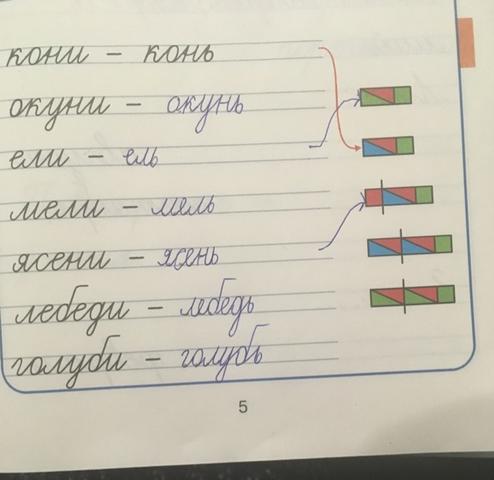 кони – конь
окуни – окунь
ели – ель
мели – мель
ясени – ясень
лебеди – лебедь
голуби – голубь
5